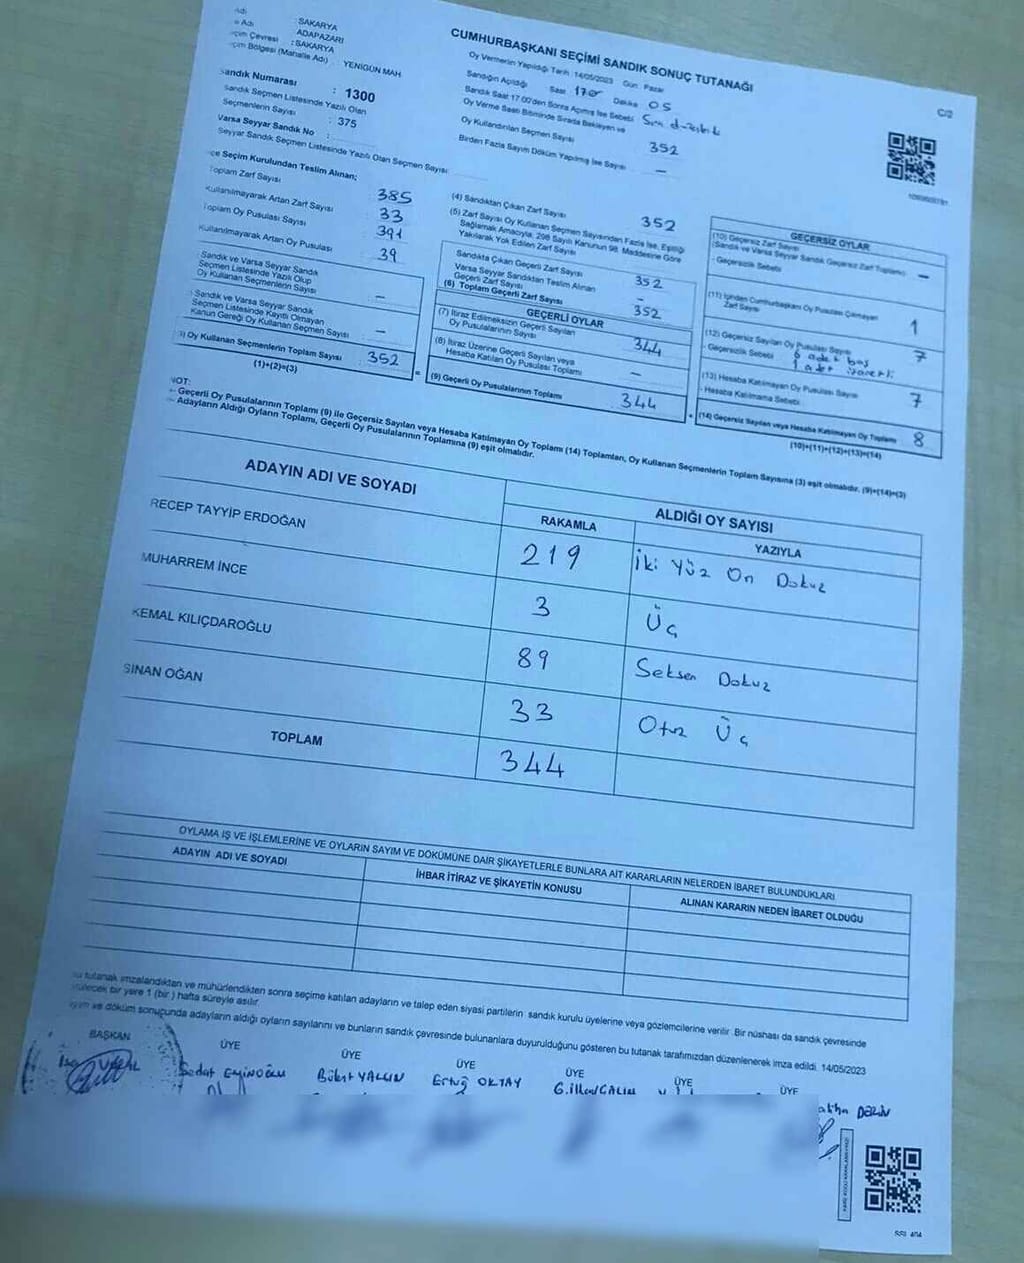 CUMHURBAŞKANI SEÇİMİ SANDIK SONUÇ TUTANAĞI
C/2
: SAKARYA
ADAPAZARI
: SAKARYA
Bölgesi (Mahalle Adı) : YENİGÜN MAH
Sandık Numarası : 1300
Sandık Seçmen Listesinde Yazılı Olan
Seçmenlerin Sayısı : 375
Varsa Seyyar Sandık No :
Seyyar Sandık Seçmen Listesinde Yazılı Olan Seçmen Sayısı:
Oy Vermenin Yapıldığı Tarih : 14/05/2023 Gün : Pazar
Sandığın Açıldığı Saat Dakika 05
Sandık Saat 17:00'den Sonra Açılmış İse Sebebi
Oy Verme Saati Bitiminde Sırada Bekleyen ve
Oy Kullandırılan Seçmen Sayısı 352
Birden Fazla Sayım Döküm Yapılmış İse Sayısı —
Seçim Kurulundan Teslim Alınan;
Toplam Zarf Sayısı 385
Kullanılmayarak Artan Zarf Sayısı 33
Toplam Oy Pusulası Sayısı 391
Kullanılmayarak Artan Oy Pusulası 39
Sandık ve Varsa Seyyar Sandık
Seçmen Listesinde Yazılı Olup
Oy Kullanan Seçmenlerin Sayısı —
Sandık ve Varsa Seyyar Sandık
Seçmen Listesinde Kayıtlı Olmayan
Kanun Gereği Oy Kullanan Seçmen Sayısı —
Oy Kullanan Seçmenlerin Toplam Sayısı 352
(1)+(2)=(3)
(4) Sandıktan Çıkan Zarf Sayısı 352
(5) Zarf Sayısı Oy Kullanan Seçmen Sayısından Fazla İse, Eşitliği
Sağlamak Amacıyla; 298 Sayılı Kanunun 98. Maddesine Göre
Yakılarak Yok Edilen Zarf Sayısı
Sandıkta Çıkan Geçerli Zarf Sayısı 352
Varsa Seyyar Sandıktan Teslim Alınan
Geçerli Zarf Sayısı —
(6) Toplam Geçerli Zarf Sayısı 352
GEÇERLİ OYLAR
(7) İtiraz Edilmeksizin Geçerli Sayılan
Oy Pusulalarının Sayısı 344
(8) İtiraz Üzerine Geçerli Sayılan veya
Hesaba Katılan Oy Pusulası Toplamı —
(9) Geçerli Oy Pusulalarının Toplamı 344
GEÇERSİZ OYLAR
(10) Geçersiz Zarf Sayısı
(Sandık ve Varsa Seyyar Sandık Geçersiz Zarf Toplamı) —
- Geçersizlik Sebebi
(11) İçinden Cumhurbaşkanı Oy Pusulası Çıkmayan
Zarf Sayısı 1
(12) Geçersiz Sayılan Oy Pusulası Sayısı 7
- Geçersizlik Sebebi 6 adet boş
1 adet işaretli
(13) Hesaba Katılmayan Oy Pusulası Sayısı 7
- Hesaba Katılmama Sebebi
(14) Geçersiz Sayılan veya Hesaba Katılmayan Oy Toplamı 8
(10)+(11)+(12)+(13)=(14)
NOT:
- Geçerli Oy Pusulalarının Toplamı (9) ile Geçersiz Sayılan veya Hesaba Katılmayan Oy Toplamı (14) Toplamları, Oy Kullanan Seçmenlerin Toplam Sayısına (3) eşit olmalıdır. (9)+(14)=(3)
- Adayların Aldığı Oyların Toplamı, Geçerli Oy Pusulalarının Toplamına (9) eşit olmalıdır.
ADAYIN ADI VE SOYADI
ALDIĞI OY SAYISI
RAKAMLA YAZIYLA
RECEP TAYYİP ERDOĞAN 219 İki Yüz On Dokuz
MUHARREM İNCE 3 Üç
KEMAL KILIÇDAROĞLU 89 Seksen Dokuz
SİNAN OĞAN 33 Otuz Üç
TOPLAM 344
OYLAMA İŞ VE İŞLEMLERİNE VE OYLARIN SAYIM VE DÖKÜMÜNE DAİR ŞİKAYETLERLE BUNLARA AİT KARARLARIN NELERDEN İBARET BULUNDUKLARI
ADAYIN ADI VE SOYADI İHBAR İTİRAZ VE ŞİKAYETİN KONUSU ALINAN KARARIN NEDEN İBARET OLDUĞU
tutanak imzalandıktan ve mühürlendikten sonra seçime katılan adayların ve talep eden siyasi partilerin sandık kurulu üyelerine veya gözlemcilerine verilir. Bir nüshası da sandık çevresinde
bir yere 1 (bir) hafta süreyle asılır.
ve döküm sonuçunda adayların aldığı oyların sayılarını ve bunların sandık çevresinde bulunanlara duyurulduğunu gösteren bu tutanak tarafımızdan düzenlenerek imza edildi. 14/05/2023
BAŞKAN ÜYE ÜYE ÜYE ÜYE ÜYE ÜYE
Sedat Bülent YALÇIN Ertuğ OKTAY